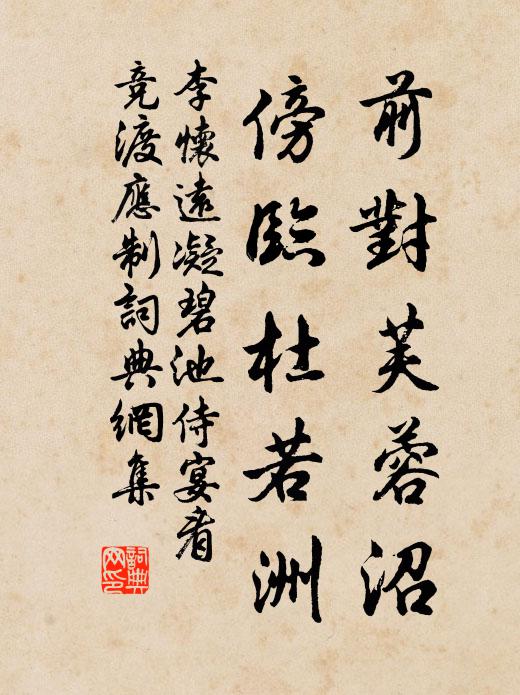 前對芙蓉沼
傍臨杜若洲
李懷遠凝碧池侍宴看
競渡應制詞典網集
詞典
网印